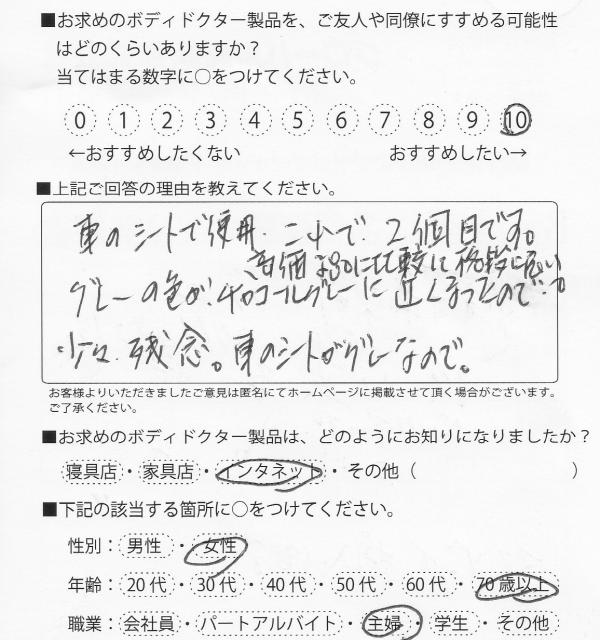 ■お求めのボディドクター製品を、ご友人や同僚にすすめる可能性
はどのくらいありますか？
当てはまる数字に○をつけてください。
0 1 2 3 4 5 6 7 8 9 10
←おすすめしたくない おすすめしたい→
■上記ご回答の理由を教えてください。
車のシートで使用. これで. 2個目です。
高価
グレーの色が.チャコールグレーに 近くなったので
少々.残念。車のシートがグレーなので。
お客様よりいただきましたご意見は匿名にてホームページに掲載させて頂く場合がございます。
ご了承ください。
■お求めのボディドクター製品は、どのようにお知りになりましたか？
寝具店・家具店・インタネット・その他（ ）
■下記の該当する箇所に○をつけてください。
性別：男性・女性
年齢：20代・30代・40代・50代・60代・70歳以上
職業：会社員・パートアルバイト・主婦・学生・その他